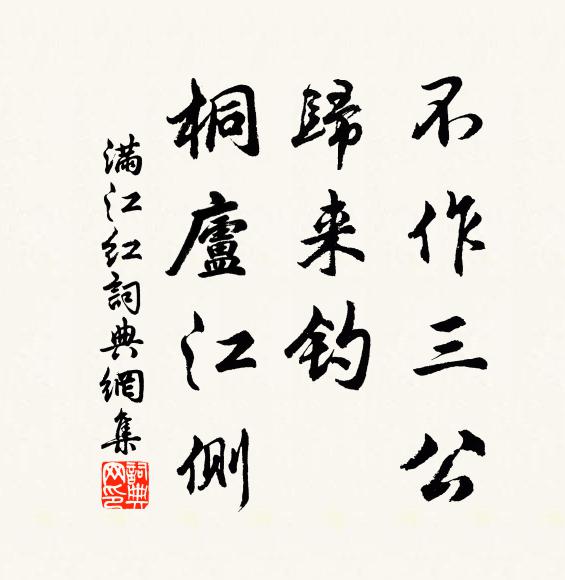 不作三公
歸来钓
桐廬江側
满江红詞典網集
詞典网印